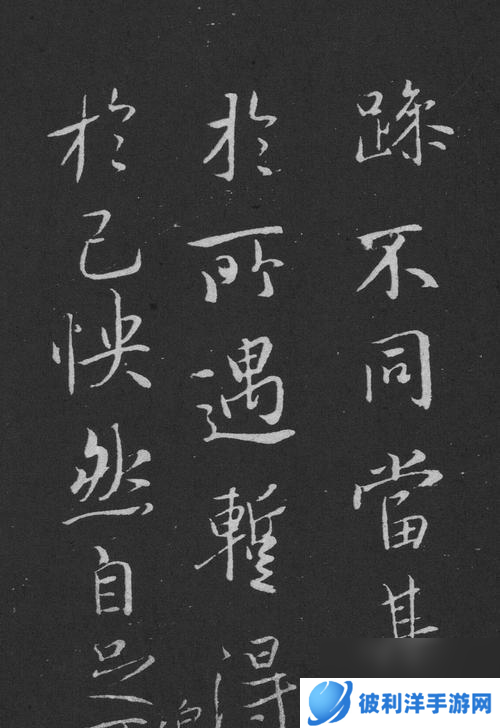 躁不同當其
於所遇蹔得
於己怏然自足
彼利洋手游网